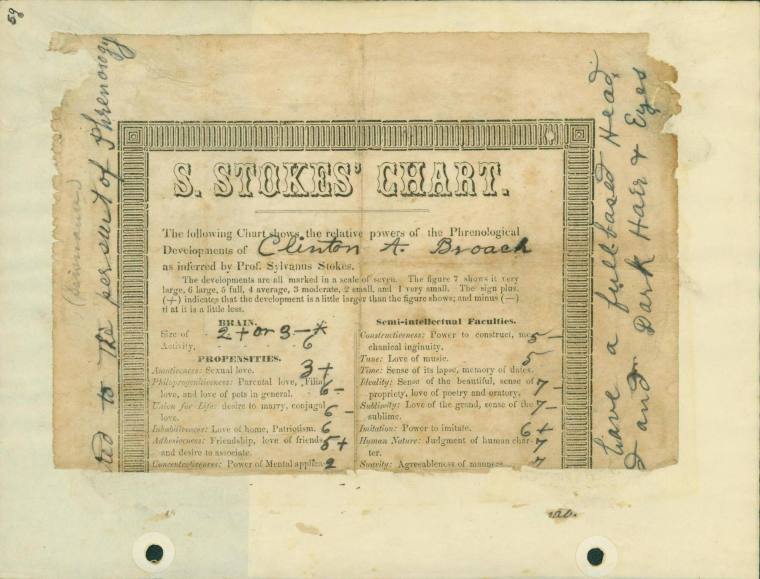 59
S. STOKES' CHART.
The following Chart shows the relative powers of the Phrenological
Developments of Clinton A. Broach
as inferred by Prof. Sylvanus Stokes.
The developments are all marked in a scale of seven. The figure 7 shows it very
large, 6 large, 5 full, 4 average, 3 moderate, 2 small, and 1 very small. The sign plus
(+) indicates that the development is a little larger than the figure shows; and minus (—)
that it is a little less.
BRAIN.
Size of 2+ or 3-*
Activity, 6
PROPENSITIES.
Amativeness: Sexual love. 3+
Philoprogenitiveness: Parental love, Filial
love, and love of pets in general. 6-
Union for Life: desire to marry, conjugal
love. 6-
Inhabitiveness: Love of home, Patriotism. 6
Adhesiveness: Friendship, love of friends
and desire to associate. 5+
Concentrativeness: Power of Mental applica 2
Semi-intellectual Faculties.
Constructiveness: Power to construct, me-
chanical inginuity. 5-
Tune: Love of music. 5
Time: Sense of its lapse, memory of dates.
Ideality: Sense of the beautiful, sense of
propriety, love of poetry and oratory. 7-
Sublimity: Love of the grand, sense of the
sublime. 7-
Imitation: Power to imitate. 6+
Human Nature: Judgment of human char-
ter. 7
Suavity: Agreeableness of manners. 7
ted to the persuit of Phrenology
have a full based Head,
and Dark Hair & Eyes